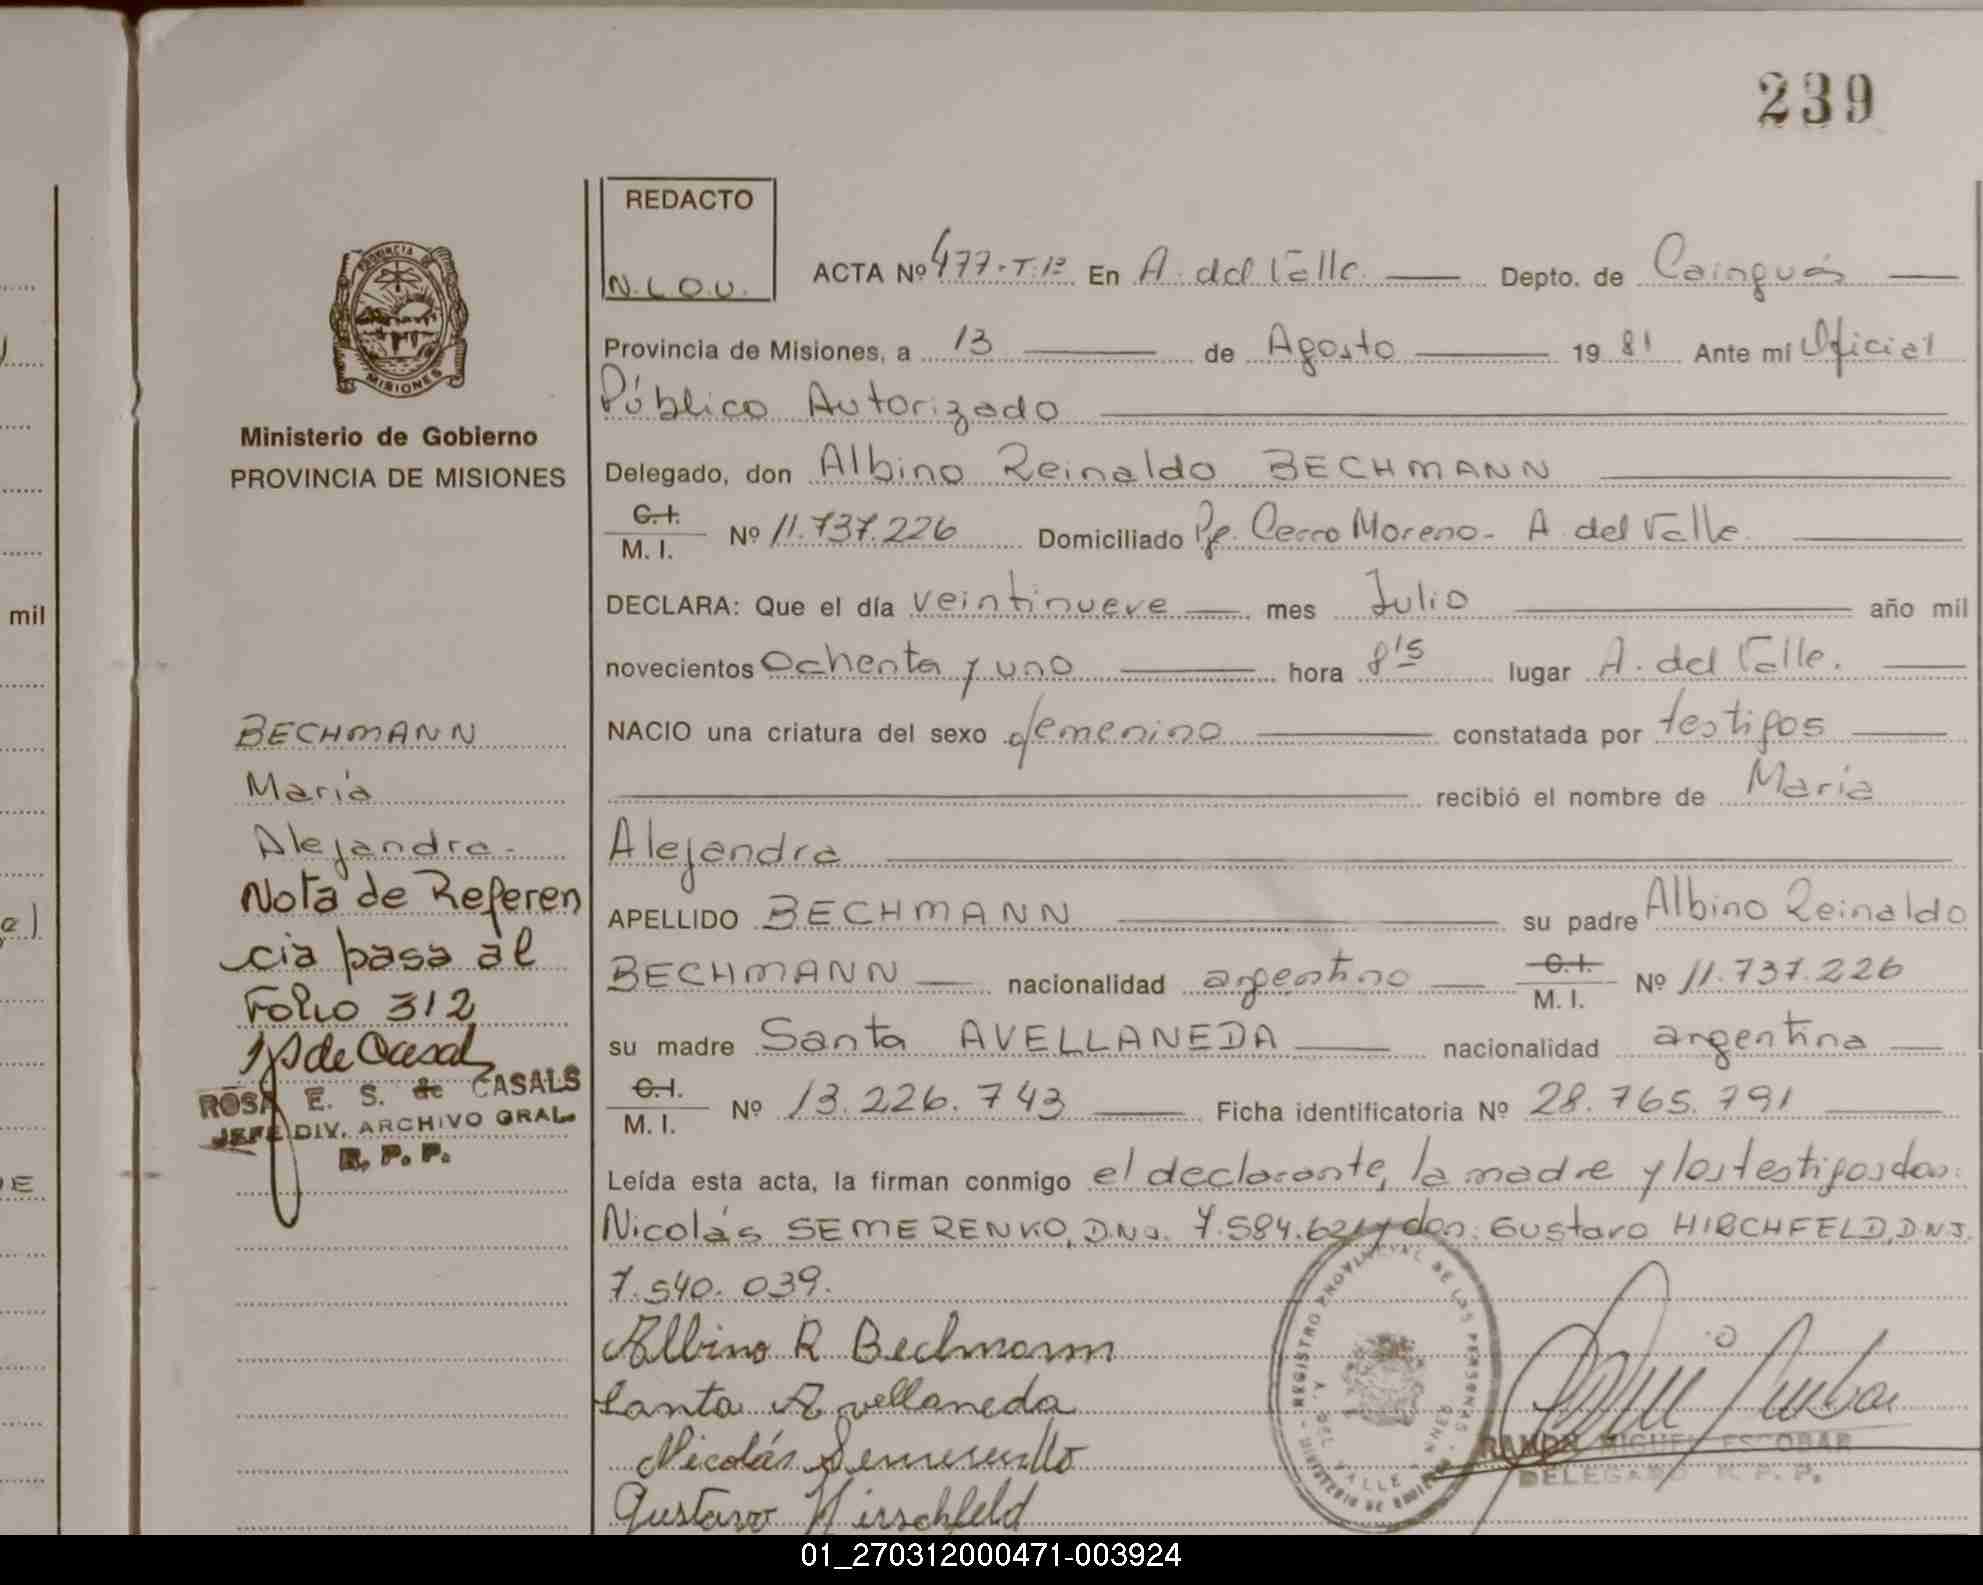 239
REDACTO
N.L.O.U.
PROVINCIA DE
MISIONES
Ministerio de Gobierno
PROVINCIA DE MISIONES
ACTA Nº 477-T.1º En A. del Valle Depto. de Cainguás
Provincia de Misiones, a 13 de Agosto 19 81 Ante mí Oficial
Público Autorizado
Delegado, don Albino Reinaldo BECHMANN
C.I.
M. I. Nº 11.737.226 Domiciliado Pje. Cerro Moreno - A. del Valle.
DECLARA: Que el día veintinueve mes Julio año mil
novecientos ochenta y uno hora 8'15 lugar A. del Valle.
NACIO una criatura del sexo femenino constatada por testigos
recibió el nombre de María
Alejandra
APELLIDO BECHMANN su padre Albino Reinaldo
BECHMANN nacionalidad argentino C.I. M. I. Nº 11.737.226
su madre Santa AVELLANEDA nacionalidad argentina
C.I.
M. I. Nº 13.226.743 Ficha identificatoria Nº 28.765.791
Leída esta acta, la firman conmigo el declarante, la madre y los testigos don:
Nicolás SEMERENKO, D.N.I. 7.584.621 y don: Gustavo HIRCHFELD, D.N.I.
7.540.039.
Albino R Bechmann
Santa Avellaneda
Nicolás Semerenko
Gustavo Hirschfeld
REGISTRO PROVINCIAL DE LAS PERSONAS
DEL VALLE
RAMON MIGUEL ESCOBAR
DELEGADO R. P. P.
BECHMANN
María
Alejandra.-
Nota de Referen
cia pasa al
Folio 312
ROSA E. S. de CASALS
JEFE DIV. ARCHIVO GRAL.
R. P. P.
mil
01_270312000471-003924